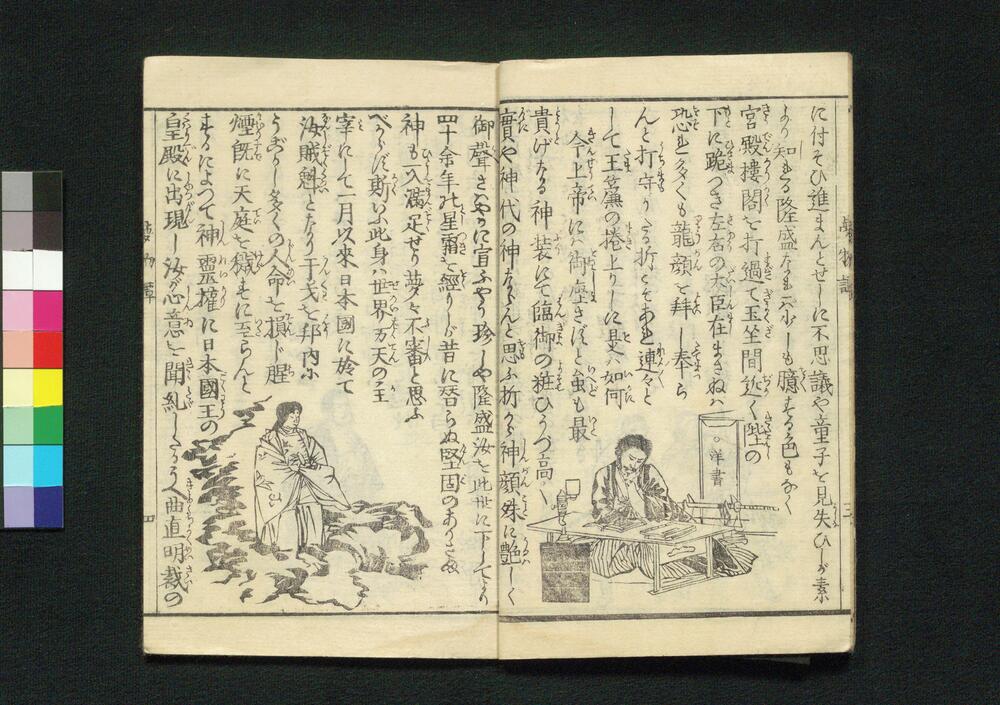 に付そひ進まんとせしに不思議や童子を見失ひしが素
より知れる隆盛なれバ少しも臆する色もなく
宮殿樓閣を打過て玉坐間近く陛の
下に跪つき左右の大臣在まさねバ
恐れ多くも龍顔を拝し奉ら
んと打守りたる折こそあれ連々と
して玉簾の捲上りしに是ハ如何
今上帝にハ御座さずと雖も最
貴げなる神装にて臨御の粧ひうづ高く
實や神代の神ならんと思ふ折から神顔殊に艶しく
洋書
夢物譚
三
御聲さハやかに宣ふやう珍しや隆盛汝を此世に下してより
四十余年の星霜を經りしが昔に替らぬ堅固のありさま
神も一入満足せり夢々不審と思ふ
べからず斯いふ此身ハ世界万天の主
宰にして二月以來日本國に於て
汝賊魁となり干戈を邦内に
うごかし多くの人命を損じ腥
煙既に天庭を穢すに至らんと
するによつて神靈權に日本國王の
皇殿に出現し汝が心意を聞糺したるうへ曲直明裁の
夢物譚
四